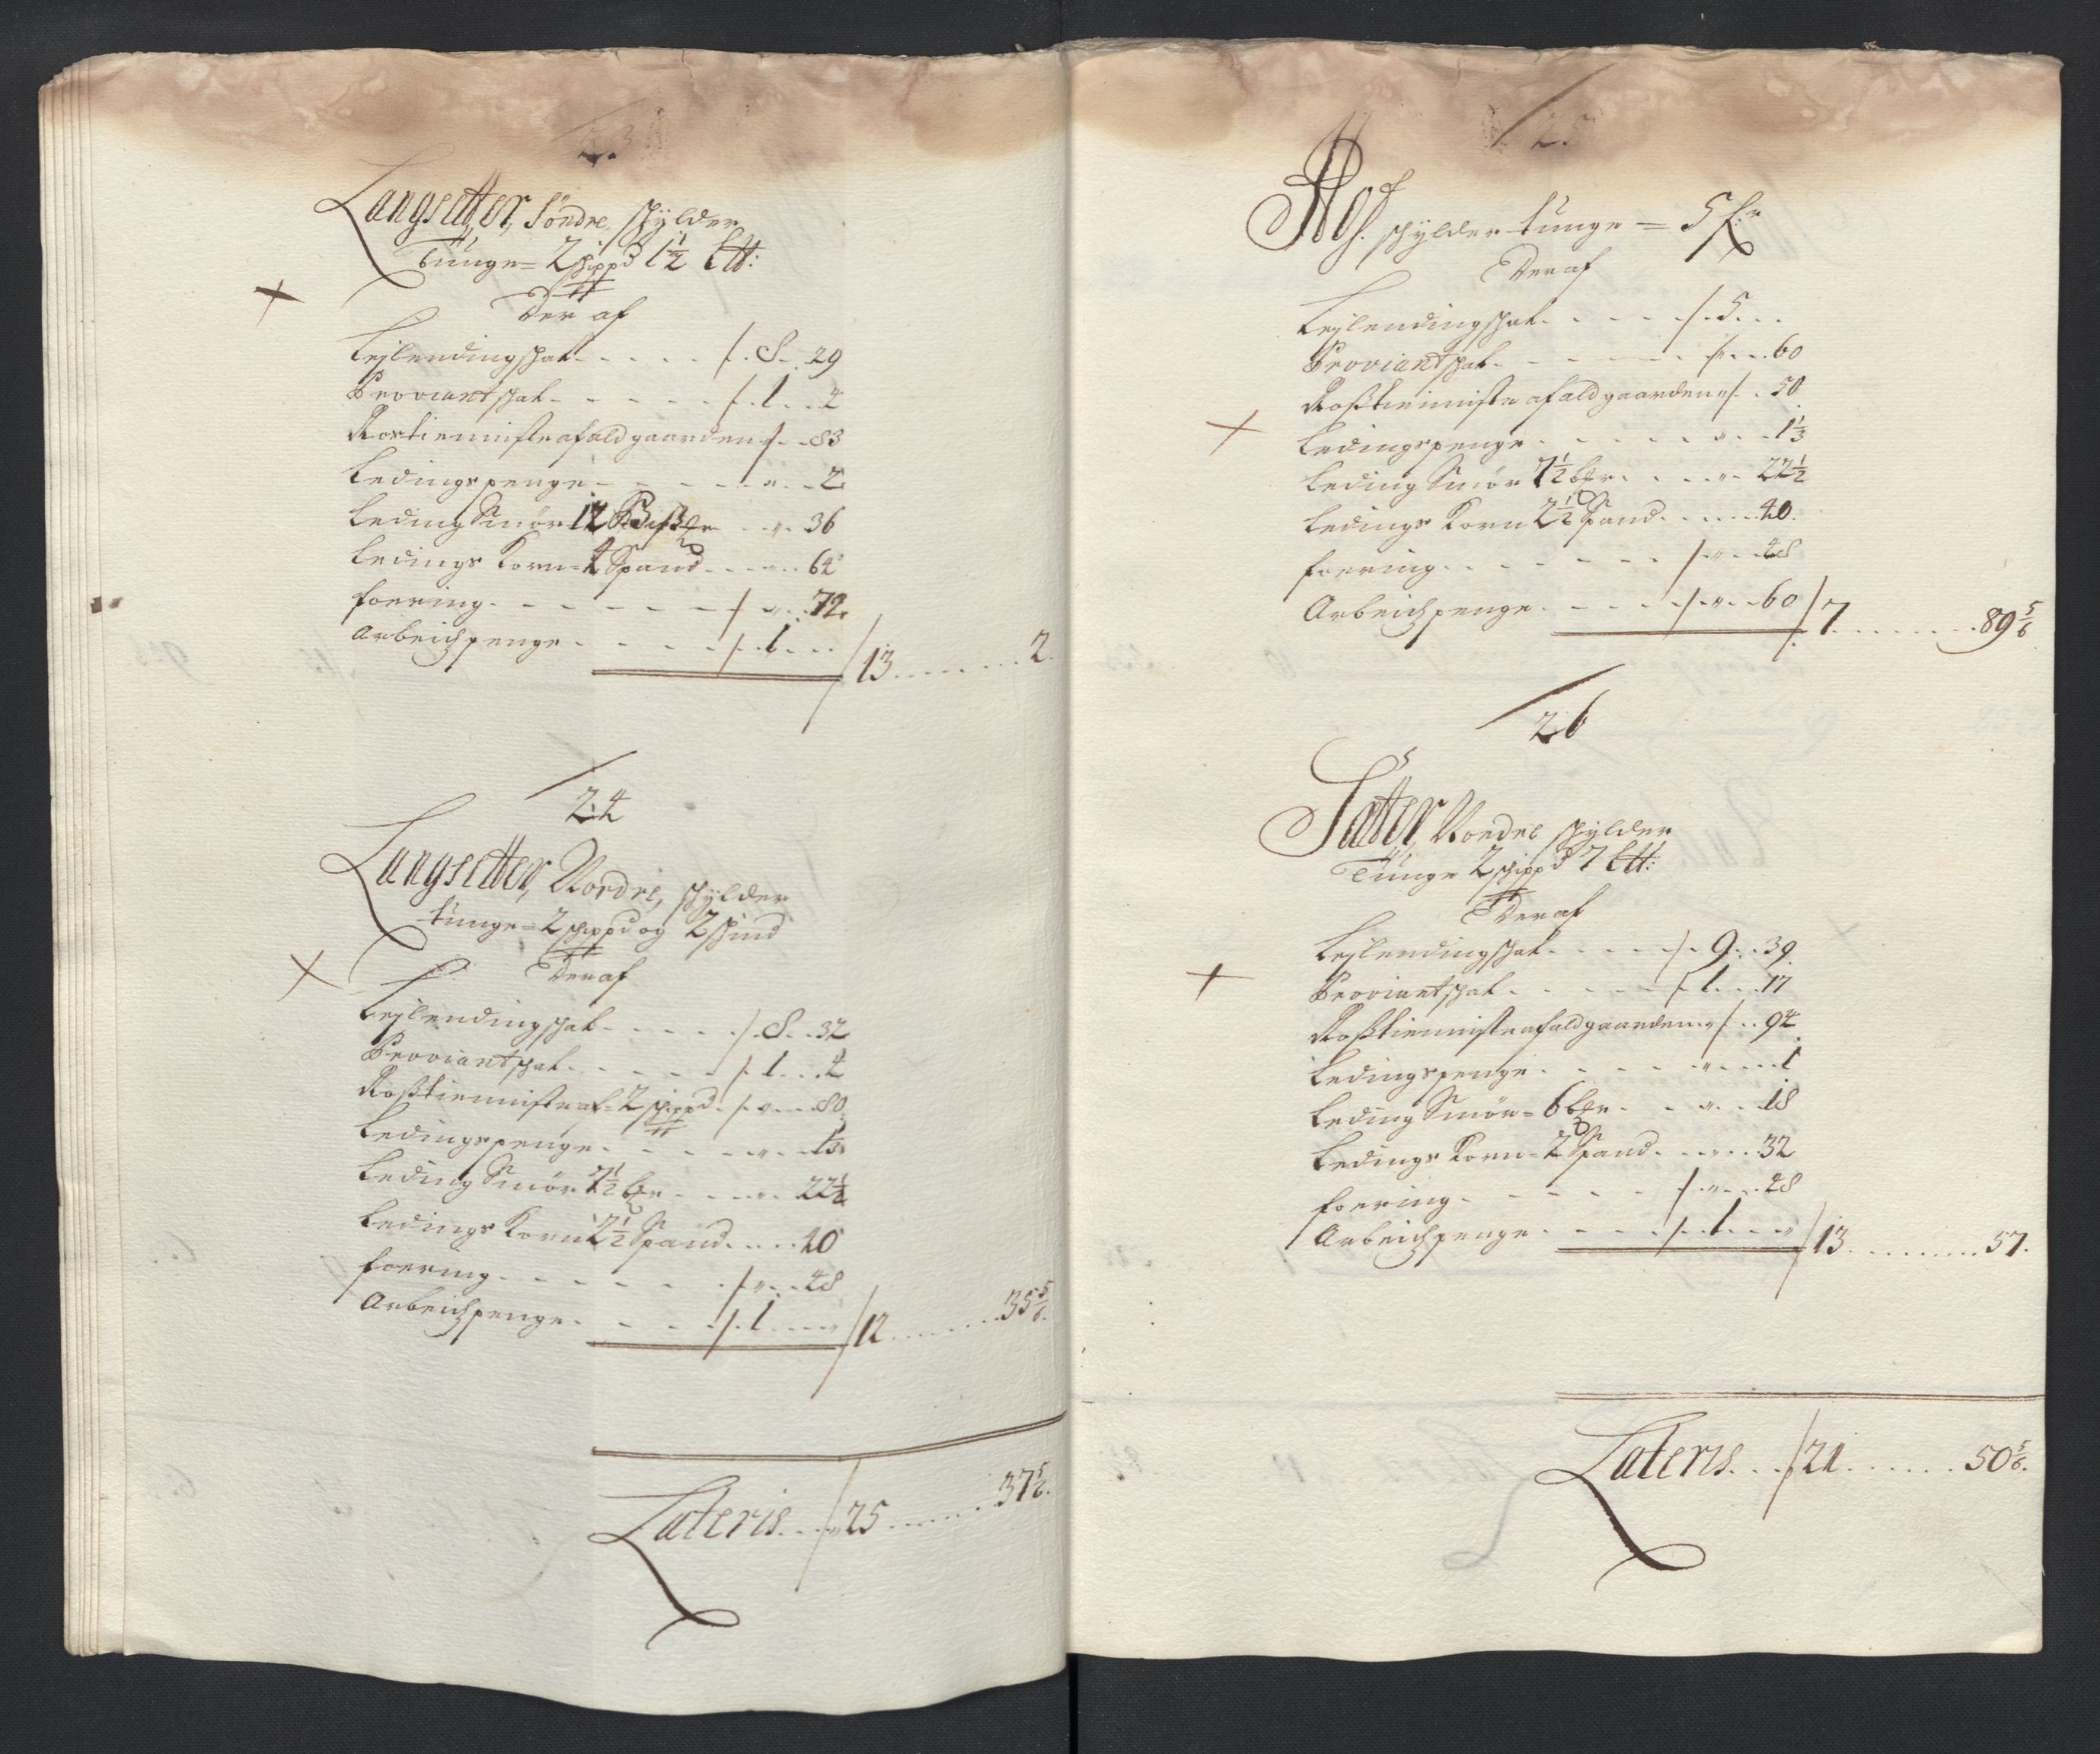 23
Langsetter, Søndre, skylder
Tunge = 2 skippd 1½ Ltt:
Der af
Lejlendingskat - - - - - /. 8 - 29
Proviantskat - - - - - /. 1 . . 4
Rostienniste af ald gaarden /. - 83
Ledingspenge - - - - - - " - - 2
Leding Smør 12 - - " - 36
Ledings Korn = 4 Spand - - - " - - 64
foering - - - - - - / - " - . 72
Arbeidspenge - - - - - /. 1 - - - / 13 . . . . . . . . 2.
24
Langsetter, Nordre, skylder
tunge = 2 skippd og 2 skind
Der af
Lejlendingskat - - - - - /. 8 . . 32
Proviantskat - - - - - - /. 1 . . . 4
Rosstienniste af = 2 skippd . /. " - . . 80
Ledingspenge - - - - - - " - - 1⅓
Leding Smør 7½ bpr - - - " - 22½
Ledings Korn 2½ Spand . . . . 40
foering - - - - - - - . / . " . . 48
Arbeidspenge - - - - - /. 1 - - - - " / 12 . . . . . . . . 35 5/6.
Lateris . . . " / 25 . . . . . . . . 37 5/6.
25
Hof. skylder tunge = 5 f:r
Der af
Lejlendingskat - - - - - /. 5 . . .
Proviantskat - - - - - - - / - . . 60
Rosstienniste af ald gaarden " / . . 50
Ledingspenge - - - - - - " . . . 1⅓
Leding Smør 7½ bpr - - - . " - 22½
Ledings Korn 2½ Spand - - . . . . 40.
foering - - - - - - - / . " . . 48
Arbeidspenge - - - - - / . " . . 60 / 7 . . . . . . . . 89 5/6
26
Sætter, Nordre skylder
Tunge 2 skippd 7 Ltt:
Der af
Lejlendingskat - - - - - / - 9 . . 39
Proviantskat - - - - - - /. 1 . . . 17
Rosstienniste af ald gaarden " / . . 94
Ledingspenge - - - - - - " . . . . 1
Leding Smør = 6 bpr - - - " . . . 18
Ledings Korn = 2 Spand - - - " . . 32
foering - - - - - - - / . " . . 48
Arbeidspenge - - - - - /. 1 . . . " / 13 . . . . . . . . 57.
Lateris . . . / 21 . . . . . . 50 5/6.